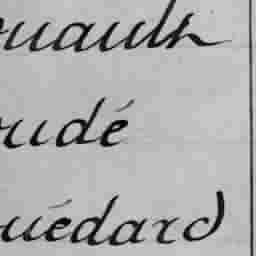 ouault
oudé
ouédard